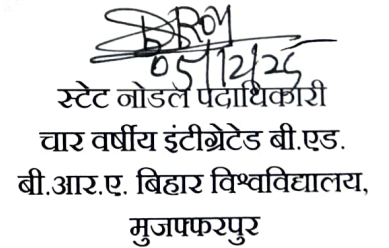 05/12/25
स्टेट नोडल पदाधिकारी
चार वर्षीय इंटीग्रेटेड बी.एड.
बी.आर.ए. बिहार विश्वविद्यालय,
मुजफ्फरपुर